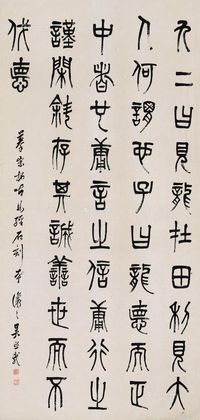 九二曰見龍在田利見大
人何謂也子曰龍德而正
中者也庸言之信庸行之
謹閑邪存其誠善世而不
伐德
石刻